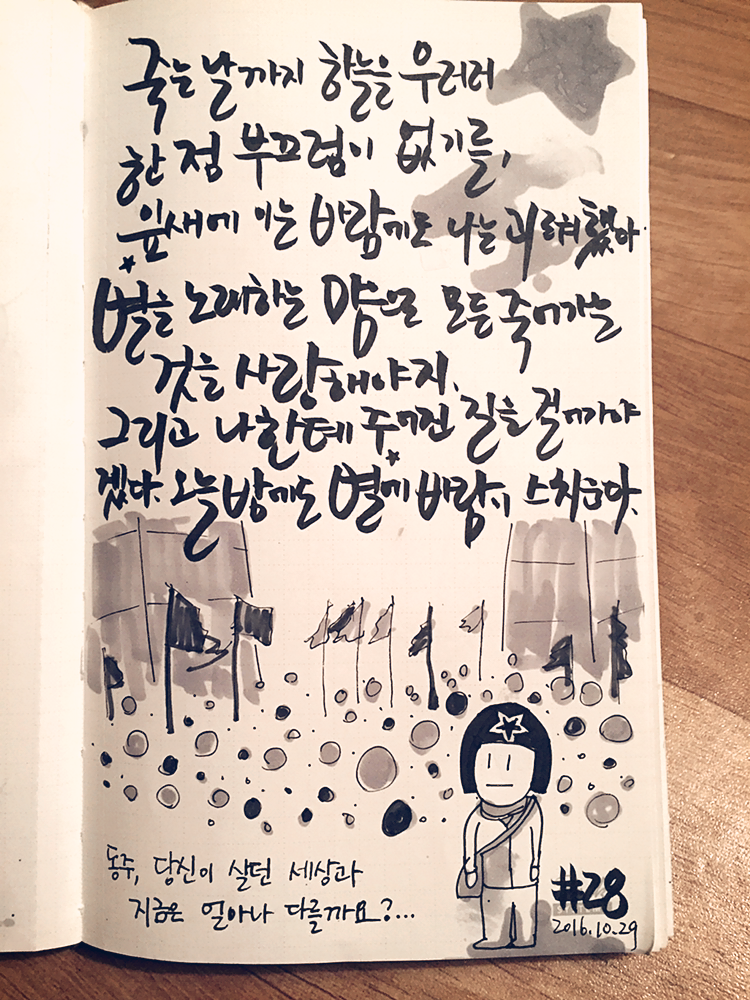 죽는 날까지 하늘을 우러러
한 점 부끄럼이 없기를,
잎새에 이는 바람에도 나는 괴로워했다.
별을 노래하는 맘으로 모든 죽어가는
것을 사랑해야지.
그리고 나한테 주어진 길을 걸어가야
겠다. 오늘 밤에도 별에 바람이 스치운다.
동주, 당신이 살던 세상과
지금은 얼마나 다를까요?...
#28
2016.10.29